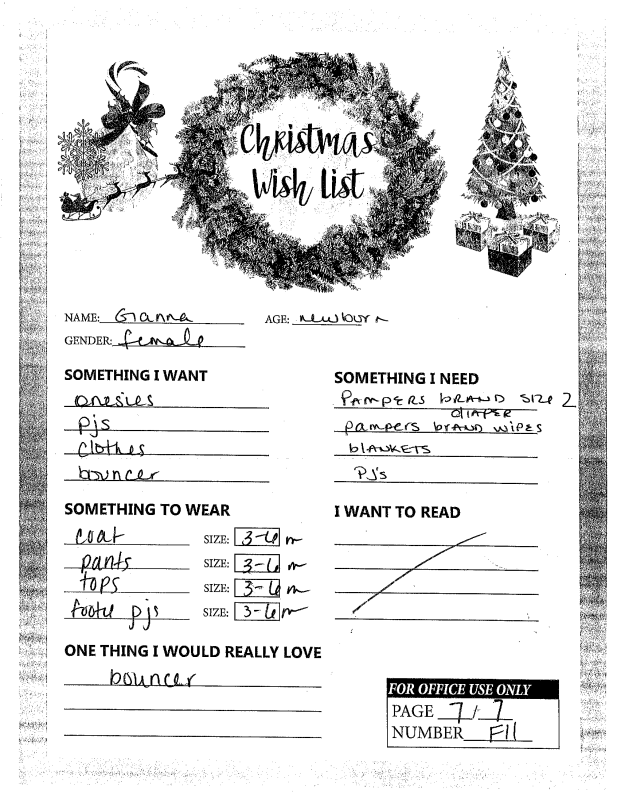 Christmas
Wish List
NAME: Gianna AGE: newborn
GENDER: female
SOMETHING I WANT
onesies
pjs
clothes
bouncer
SOMETHING I NEED
PAMPERS brAND SIZE 2
DIAPER
pampers brAND WIPES
blANKETS
PJ's
SOMETHING TO WEAR
coat SIZE: 3-6 m
pants SIZE: 3-6 m
tops SIZE: 3-6 m
footie pjs SIZE: 3-6 m
I WANT TO READ
ONE THING I WOULD REALLY LOVE
bouncer
FOR OFFICE USE ONLY
PAGE 7/7
NUMBER F11